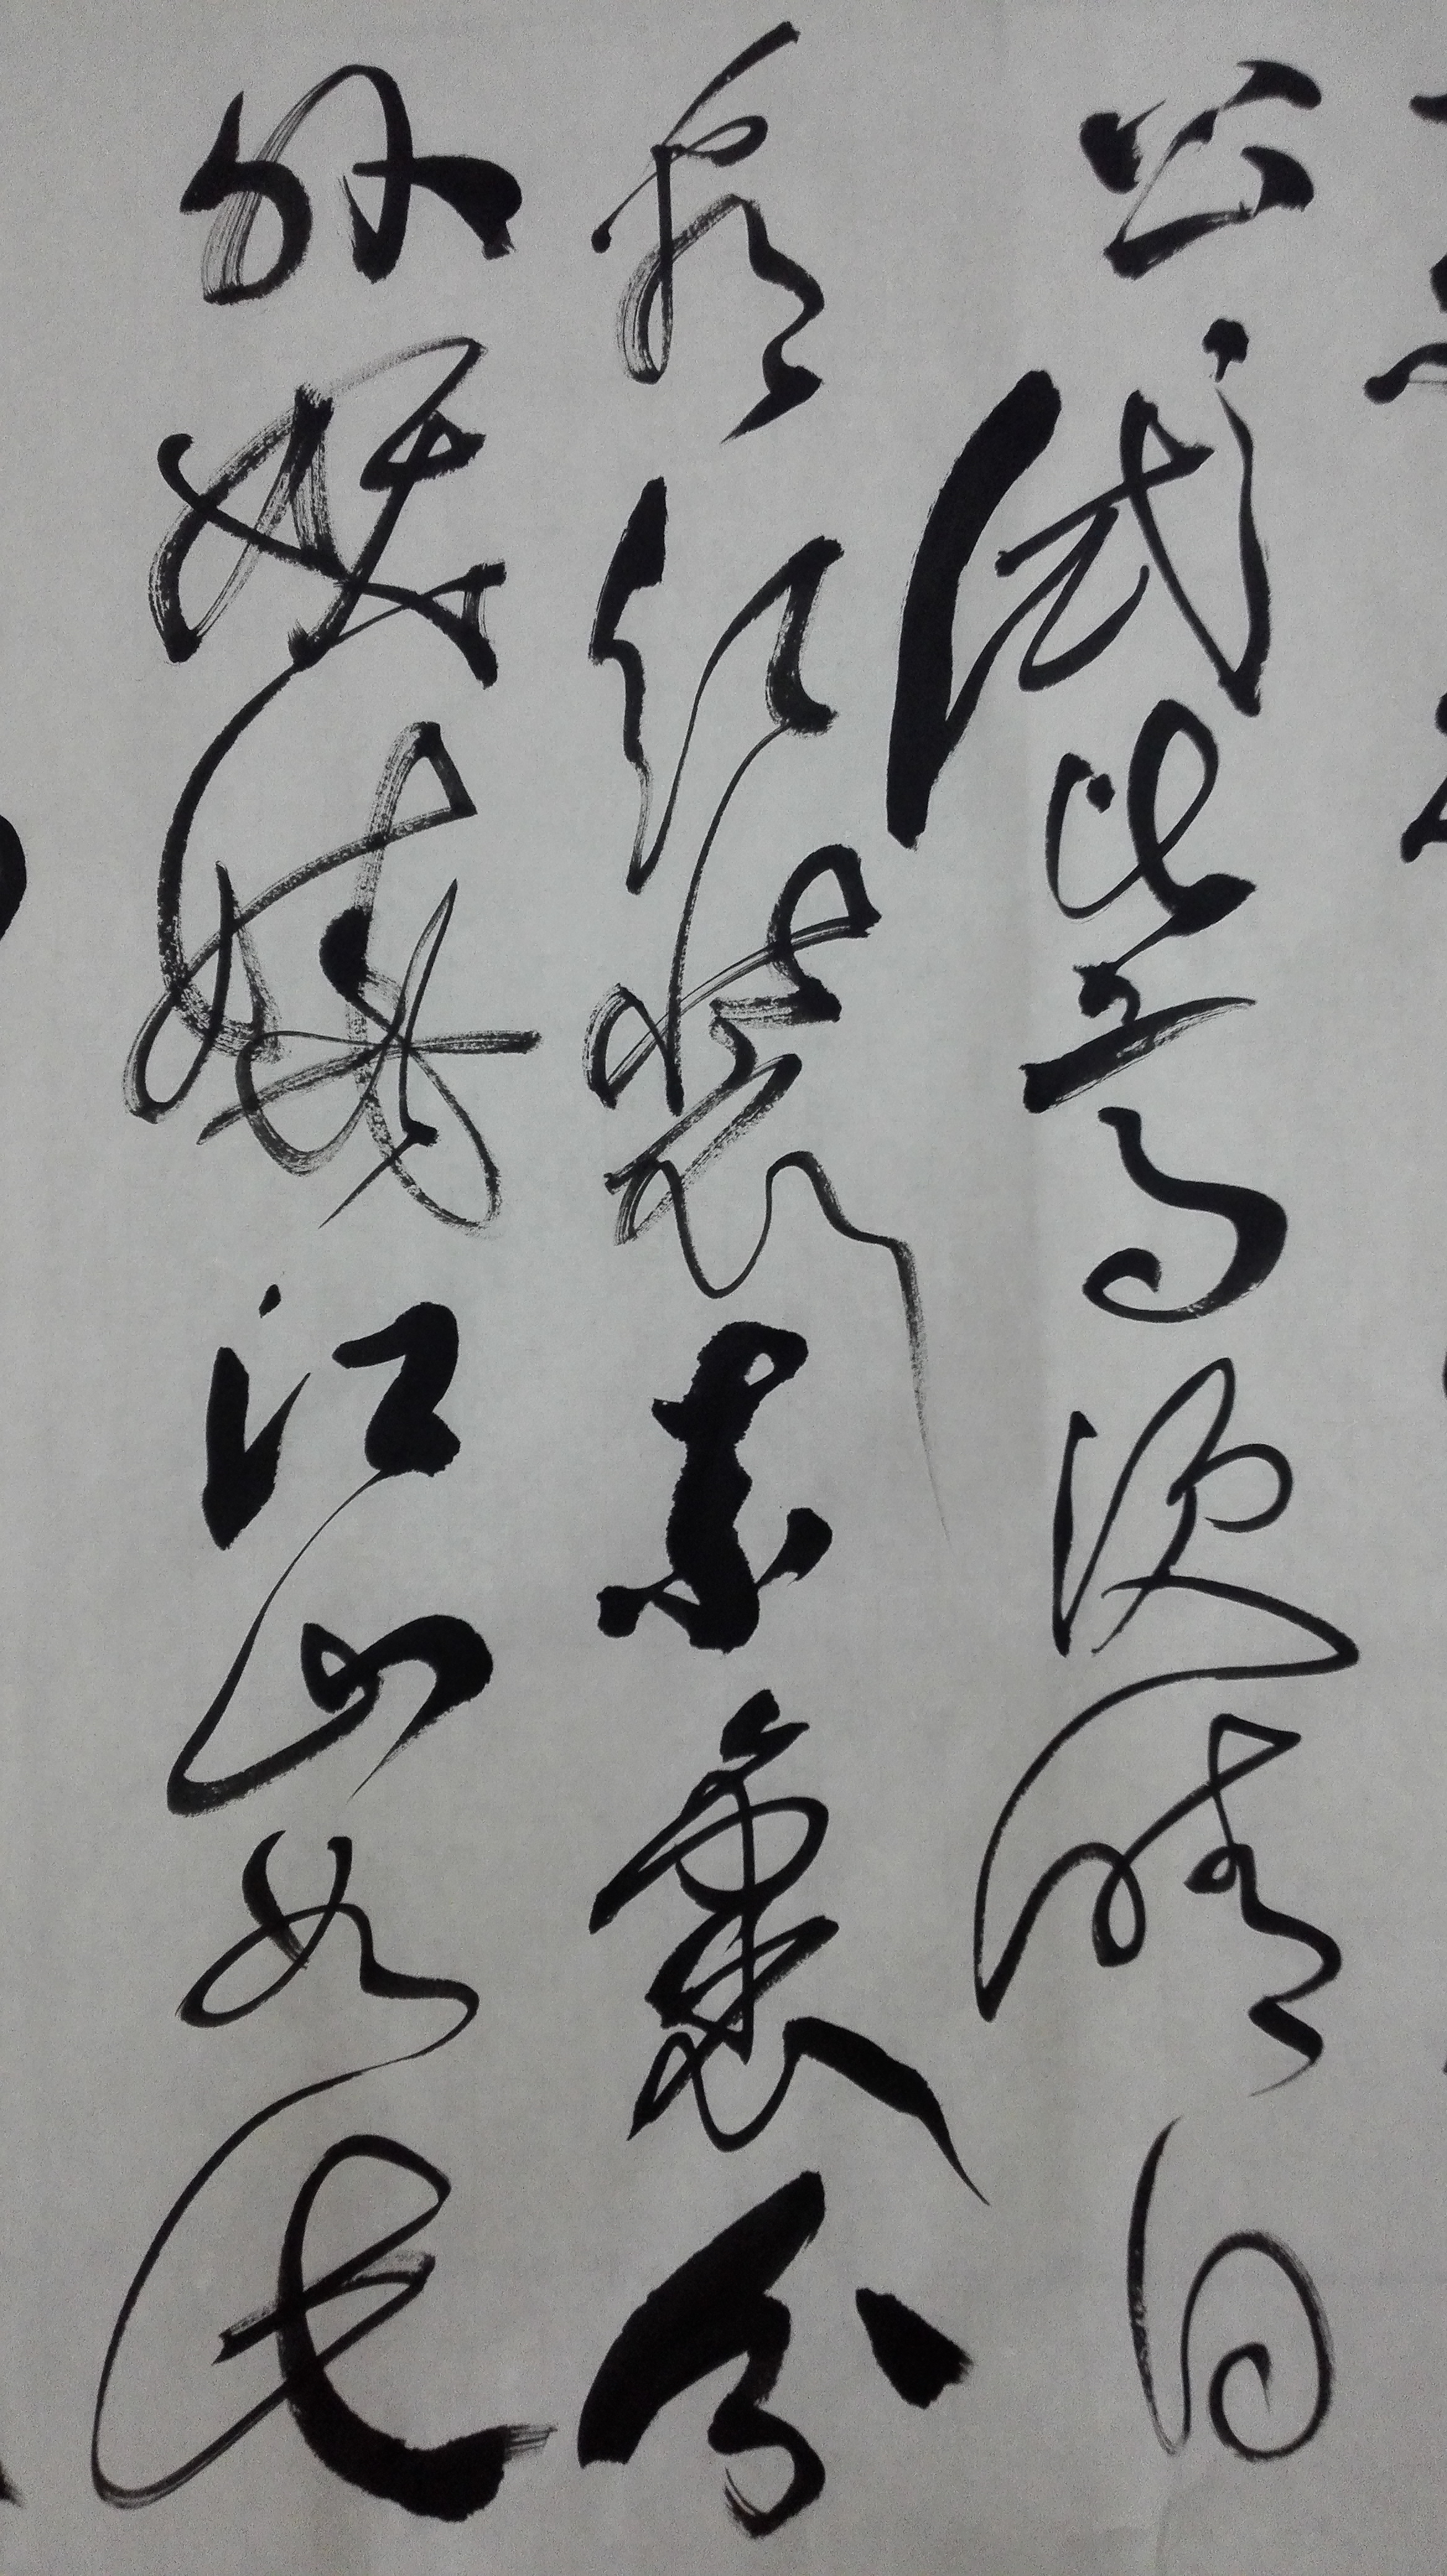 公试比高须晴日
看红装素裹分
外妖娆江山如此